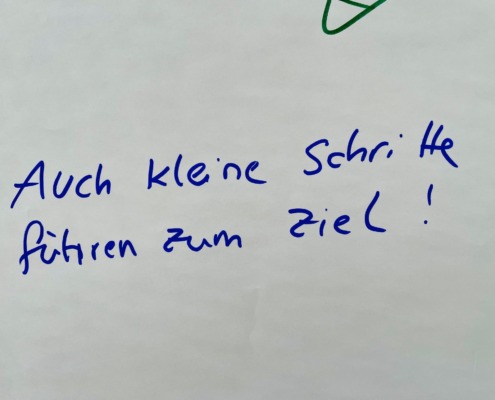 Auch kleine Schritte
führen zum Ziel!